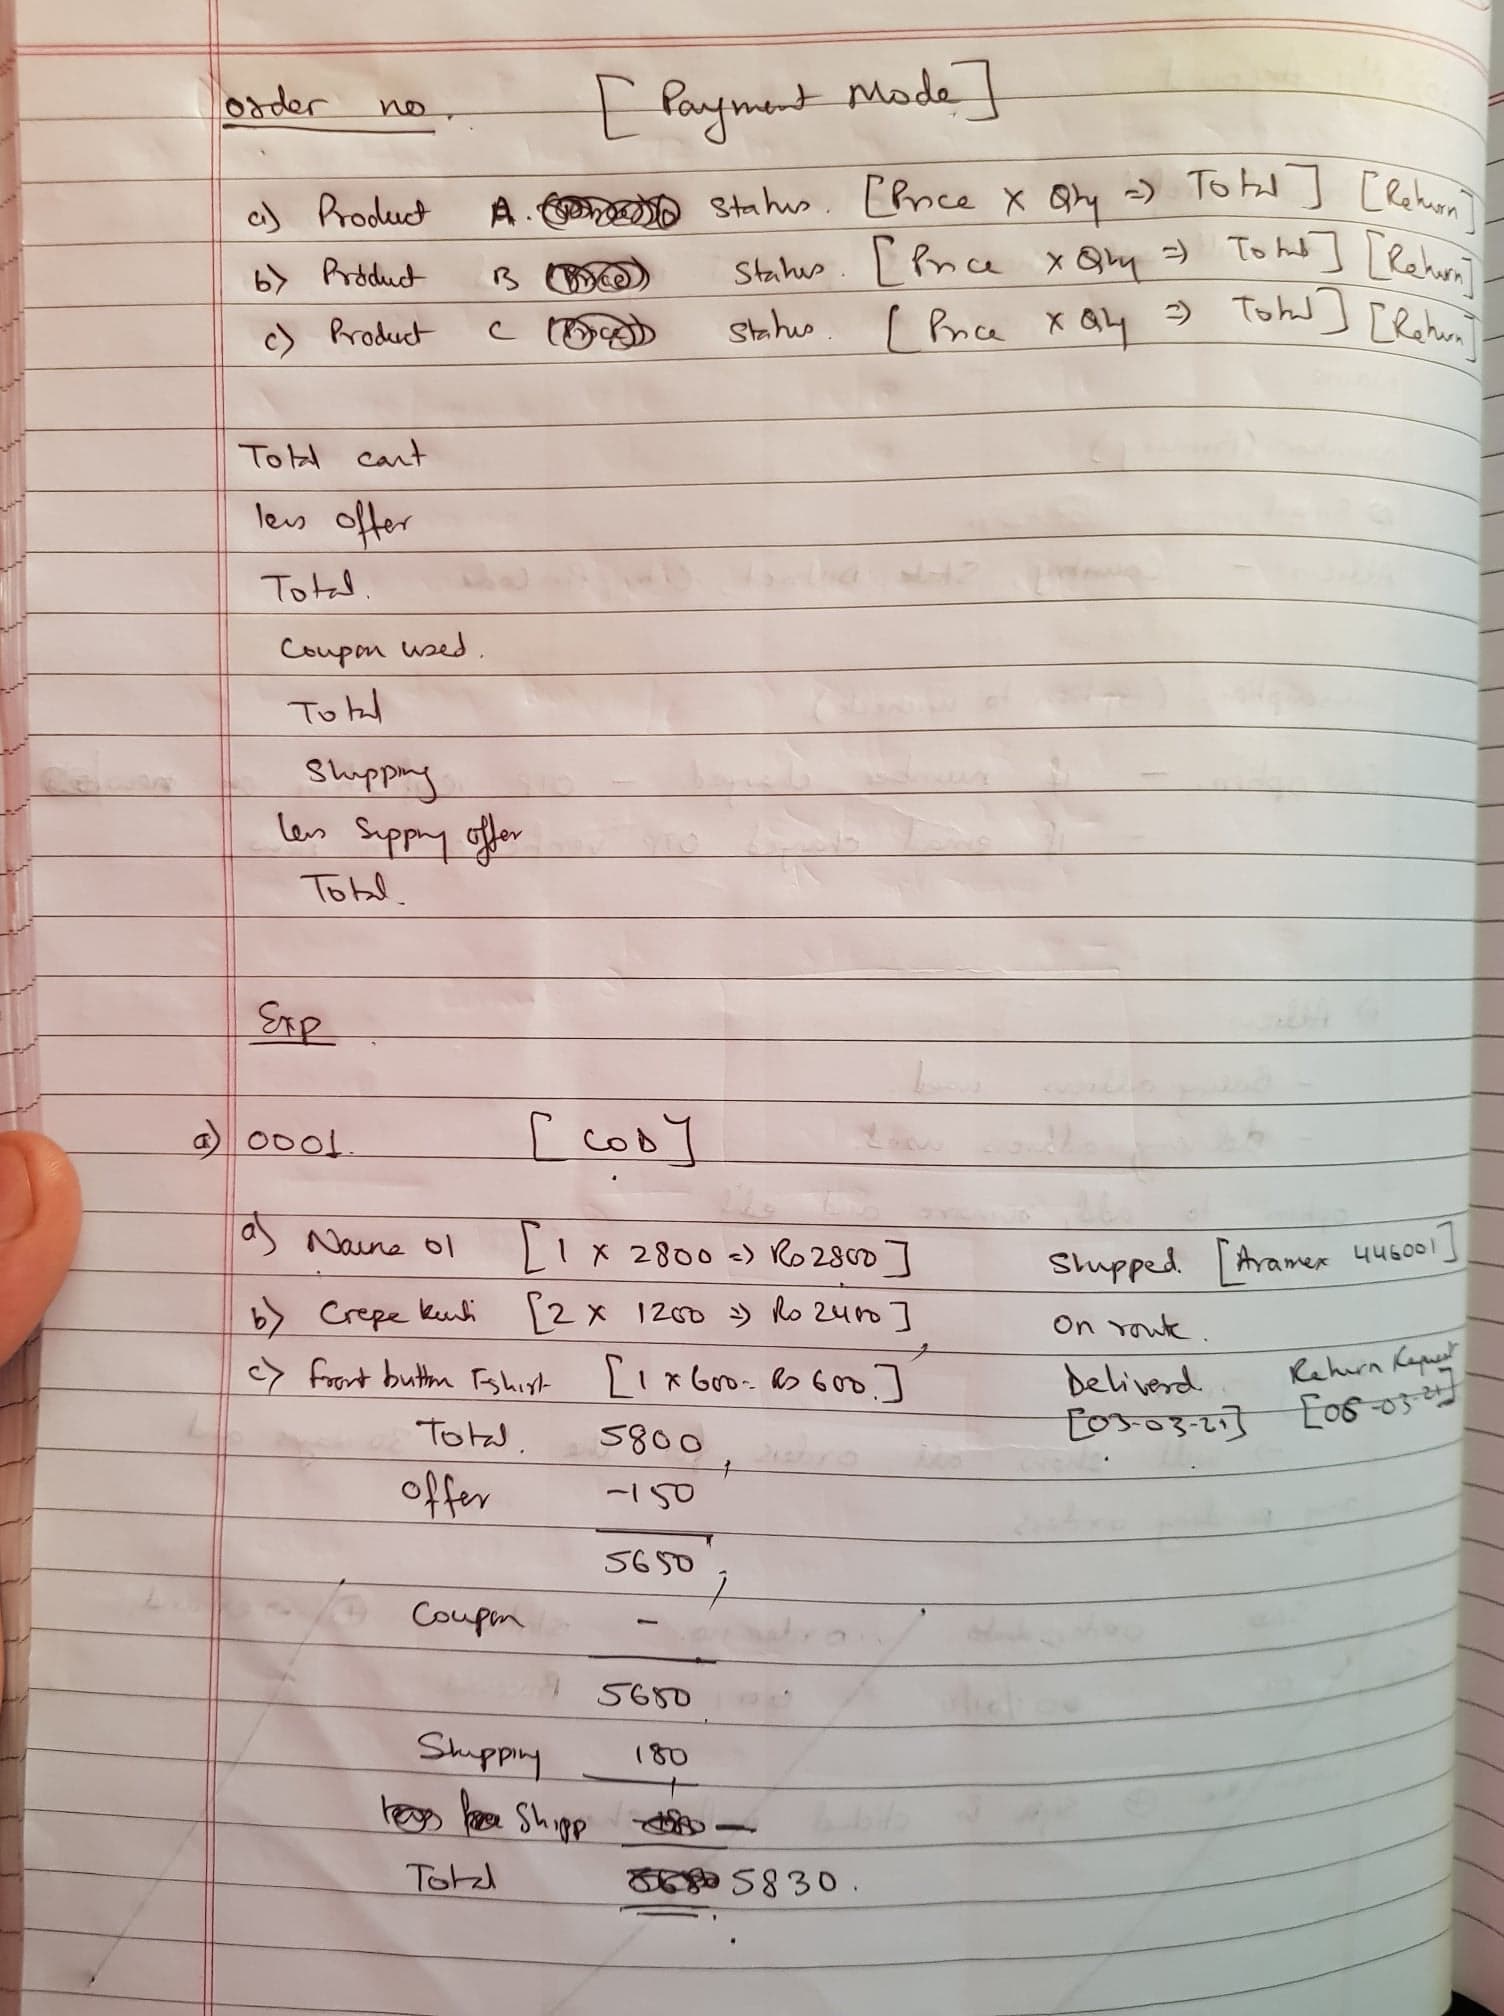 order no. [Payment Mode]
a) Product A. Status. [Price x Qty => Total] [Return]
b) Product B Status. [Price x Qty => Total] [Return]
c) Product C Status. [Price x Qty => Total] [Return]
Total cart
less offer
Total.
Coupon used.
Total
Shipping
less Sipping offer
Total.
Exp
a) 0001. [COD]
a) Name 01 [1 x 2800 => Rs 2800] Shipped. [Aramex 446001]
b) Crepe kurti [2 x 1200 => Rs 2400] On route.
c) front button Tshirt [1 x 600 = Rs 600.] Deliverd Return Request
[03-03-21] [08-03-21]
Total. 5800
offer -150
5650
Coupon -
5650
Shipping 180
Shipp -
Total 5830.